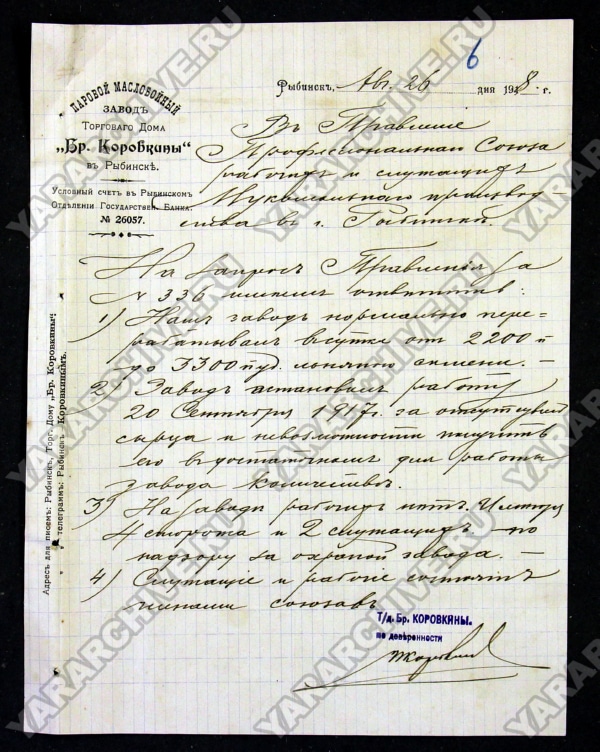 6
ПАРОВОЙ МАСЛОБОЙНЫЙ
ЗАВОДЪ
Торговаго Дома
„Бр. Коровкины“
въ Рыбинскѣ.
Условный счетъ въ Рыбинскомъ
Отдѣленіи Государствен. Банка.
№ 26057.
Рыбинскъ, Авг. 26 дня 1918. г.
Въ Правленіе
Профессіональнаго Союза
рабочихъ и служащихъ
Мукомольнаго производ-
ства въ г. Рыбинскѣ.
На запросъ Правленія за
№ 336 имѣемъ отвѣтить:
1) Нашъ заводъ нормально пере-
рабатывалъ въ сутки отъ 2200 п
до 3300 пуд. льняного сѣмени. —
2) Заводъ остановилъ работу
20 Сентября 1917 г. за отсутствіемъ
сырья и невозможности получить
его въ достаточномъ для работы
завода количествѣ.
3) На заводѣ рабочихъ нѣтъ. Имѣются
4 сторожа и 2 служащихъ по
надзору за охраной завода. —
4) Служащіе и рабочіе состоятъ
членами союзовъ
Т/д. Бр. КОРОВКИНЫ.
по довѣренности
Адресъ для писемъ: Рыбинскъ, Торг. Дому „Бр. Коровкины“
„ телеграммъ: Рыбинскъ Коровкинымъ.
YARARCHIVE.RU